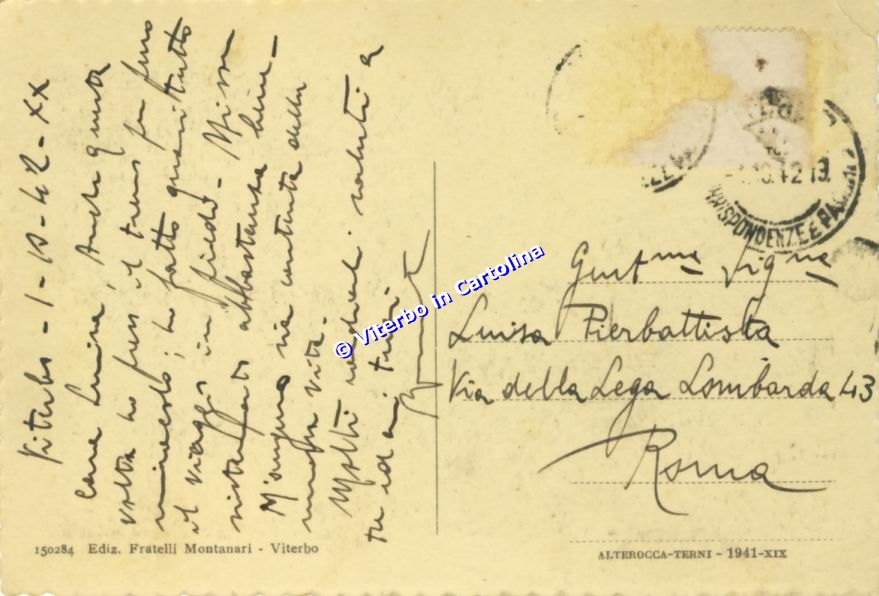 Viterbo - 1-10-42-XX
Cara Luisa, Anche questa
volta ho preso il treno per puro
miracolo; ho fatto quasi tutto
il viaggio in piedi -
abbastanza bene -
M'auguro sia contenta della
nuova vita.
Molti cordiali saluti a
te ed ai tuoi.
150284 Ediz. Fratelli Montanari - Viterbo
© Viterbo in Cartolina
10.42 19
RRISPONDENZE E PA
Gent.ma Sig.na
Luisa Pierbattista
Via della Lega Lombarda 43
Roma
ALTEROCCA-TERNI - 1941-XIX